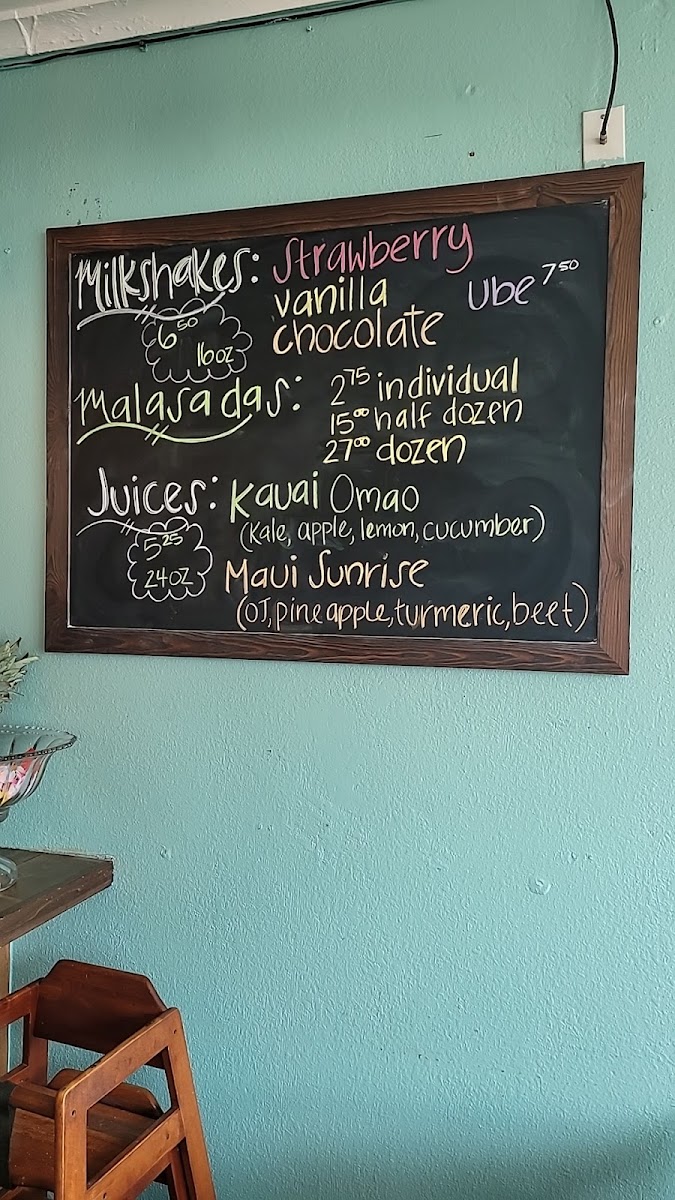 Milkshakes: Strawberry
vanilla Ube 7 50
6 50 16oz chocolate
Malasadas: 2 75 individual
15 00 half dozen
27 00 dozen
Juices: Kauai Omao
5 25 24oz (Kale, apple, lemon, cucumber)
Maui Sunrise
(OJ, pineapple, turmeric, beet)